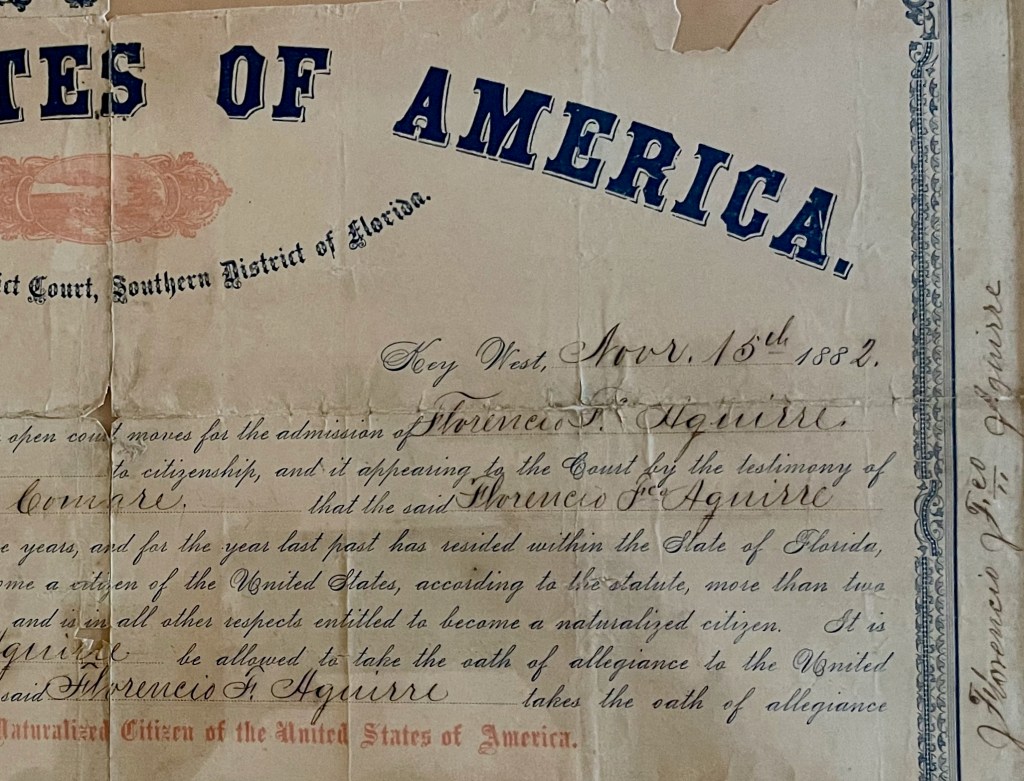 TES OF AMERICA.
ct Court, Southern District of Florida.
Key West, Novr. 15th 1882.
open court moves for the admission of Florencio F. Aguirre.
to citizenship, and it appearing to the Court by the testimony of
Comare. that the said Florencio Fco Aguirre
years, and for the year last past has resided within the State of Florida,
me a citizen of the United States, according to the statute, more than two
and is in all other respects entitled to become a naturalized citizen. It is
Aguirre be allowed to take the oath of allegiance to the United
said Florencio F. Aguirre takes the oath of allegiance
Naturalized Citizen of the United States of America.
Florencio Fco Aguirre